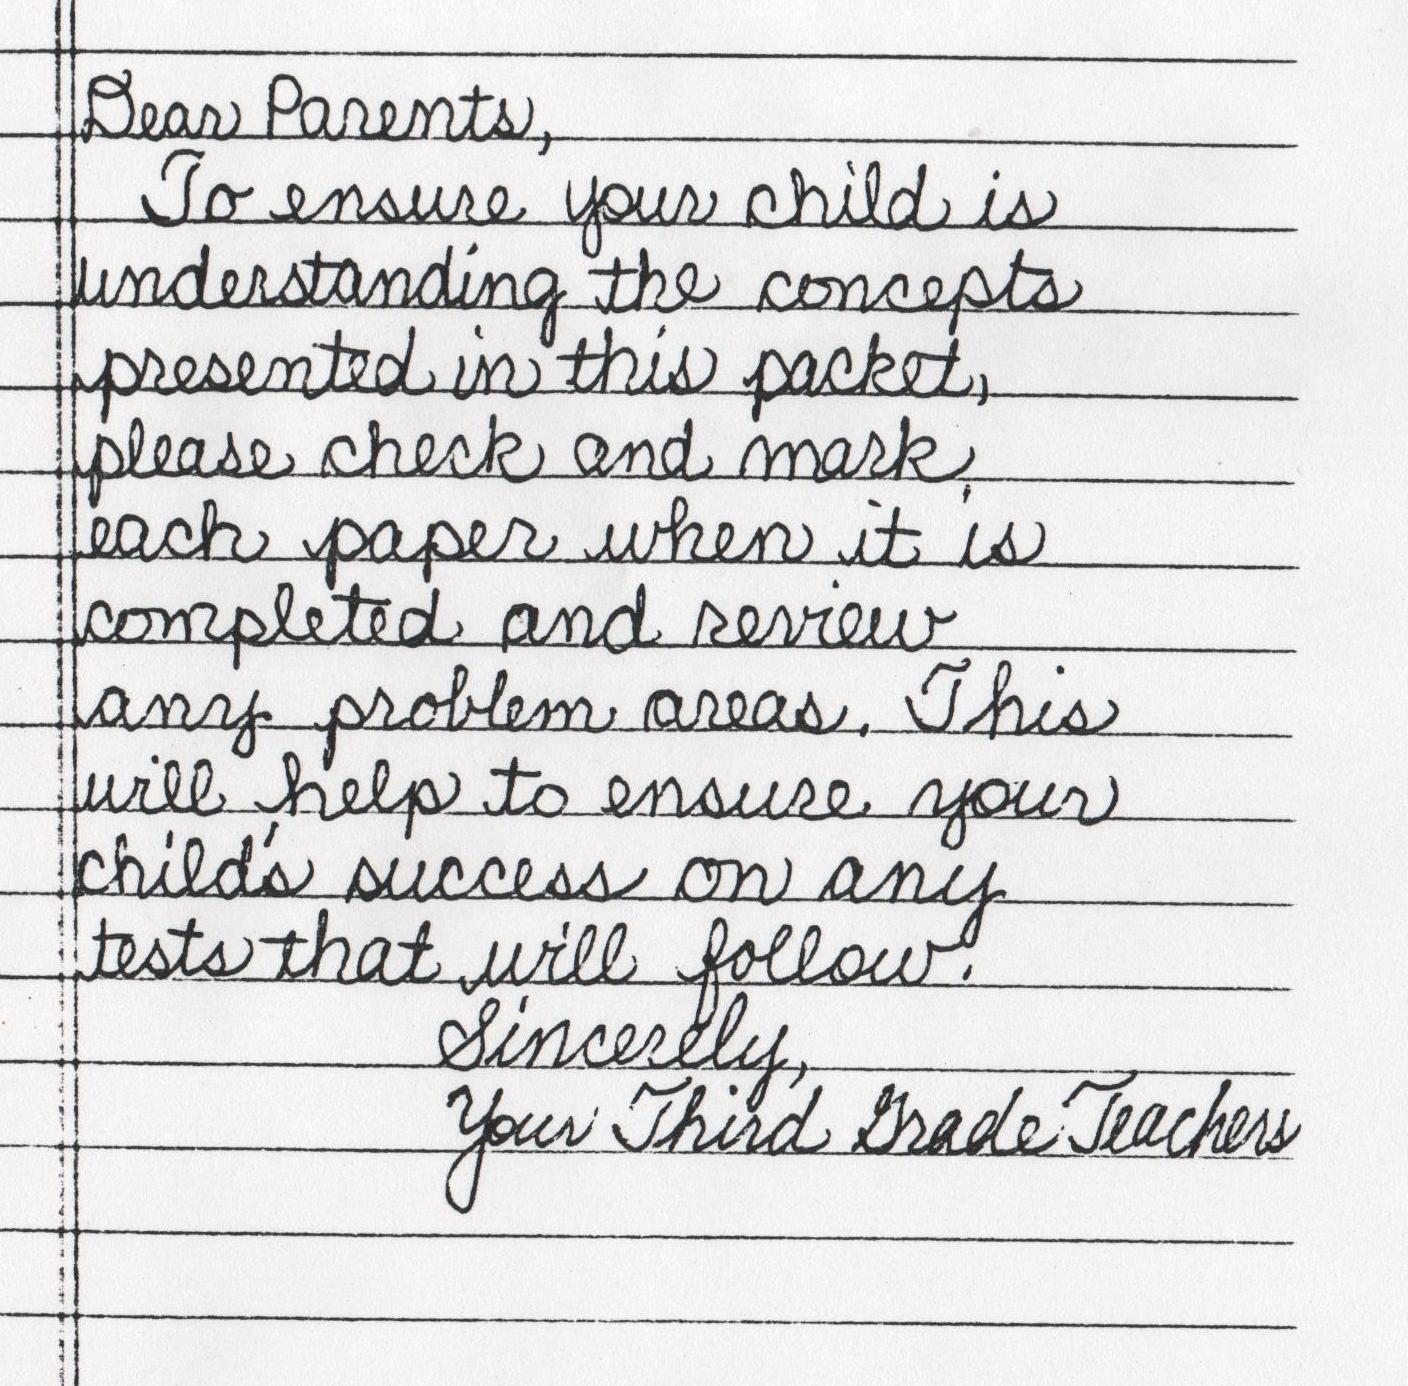 Dear Parents,
To ensure your child is
understanding the concepts
presented in this packet,
please check and mark
each paper when it is
completed and review
any problem areas. This
will help to ensure your
child's success on any
tests that will follow.
Sincerely,
Your Third Grade Teachers